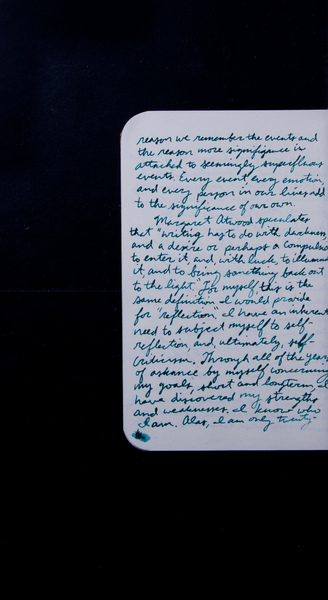 reason we remember the events and
the reason more signifigance is
attached to seemingly superfluous
events. Every event every emotion,
and every person in our lives add
to the significance of our own.
Margaret Atwood speculates
that "writing has to do with darkness,
and a desire or perhaps a compulsion
to enter it, and, with luck, to illuminate
it, and to bring something back out
to the light." For myself, this is the
same definition I would provide
for "reflection". I have an inherent
need to subject myself to self-
reflection and, ultimately, self-
criticism. Through all of the years
of askance by myself concerning
my goals, short and longterm, I
have discovered my strengths
and weaknesses. I know who
I am. Alas, I am only twenty-